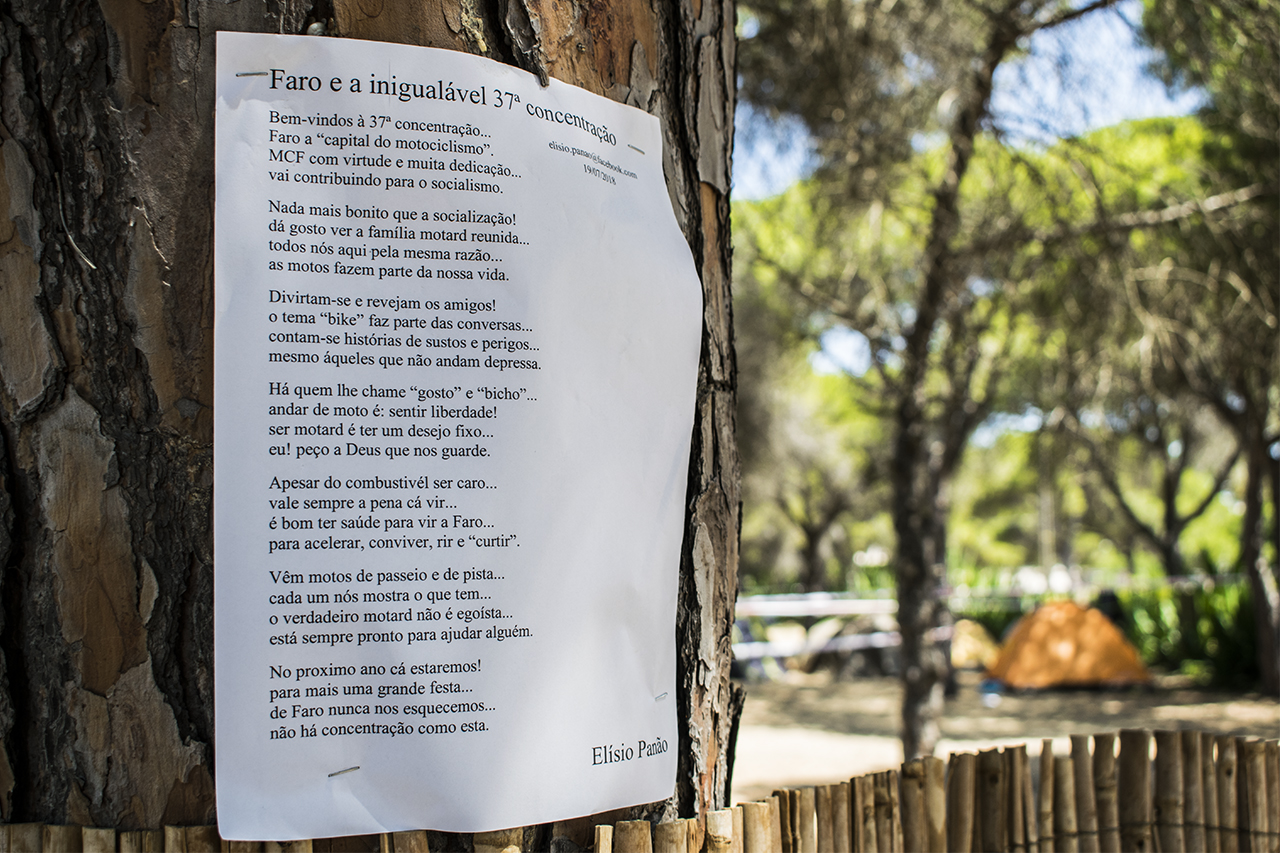 Faro e a inigualável 37ª concentração
elisio.panao@facebook.com
19/07/2018
Bem-vindos à 37ª concentração...
Faro a “capital do motociclismo”.
MCF com virtude e muita dedicação...
vai contribuindo para o socialismo.
Nada mais bonito que a socialização!
dá gosto ver a família motard reunida...
todos nós aqui pela mesma razão...
as motos fazem parte da nossa vida.
Divirtam-se e revejam os amigos!
o tema “bike” faz parte das conversas...
contam-se histórias de sustos e perigos...
mesmo áqueles que não andam depressa.
Há quem lhe chame “gosto” e “bicho”...
andar de moto é: sentir liberdade!
ser motard é ter um desejo fixo...
eu! peço a Deus que nos guarde.
Apesar do combustivél ser caro...
vale sempre a pena cá vir...
é bom ter saúde para vir a Faro...
para acelerar, conviver, rir e “curtir”.
Vêm motos de passeio e de pista...
cada um nós mostra o que tem...
o verdadeiro motard não é egoísta...
está sempre pronto para ajudar alguém.
No proximo ano cá estaremos!
para mais uma grande festa...
de Faro nunca nos esquecemos...
não há concentração como esta.
Elísio Panão